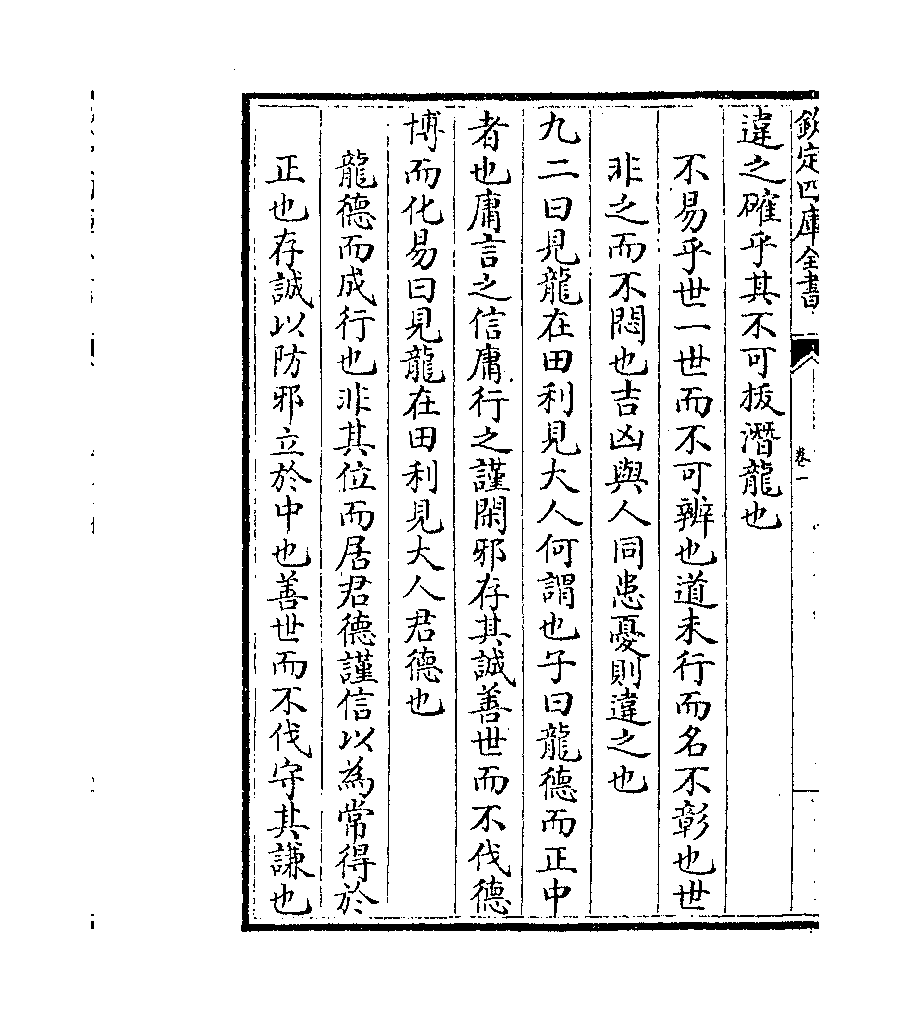 欽定四庫全書
卷一
違之確乎其不可拔潛龍也
不易乎世一世而不可辨也道未行而名不彰也世
非之而不悶也吉凶與人同患憂則違之也
九二曰見龍在田利見大人何謂也子曰龍德而正中
者也庸言之信庸行之謹閑邪存其誠善世而不伐德
博而化易曰見龍在田利見大人君德也
龍德而成行也非其位而居君德謹信以為常得於
正也存誠以防邪立於中也善世而不伐守其謙也